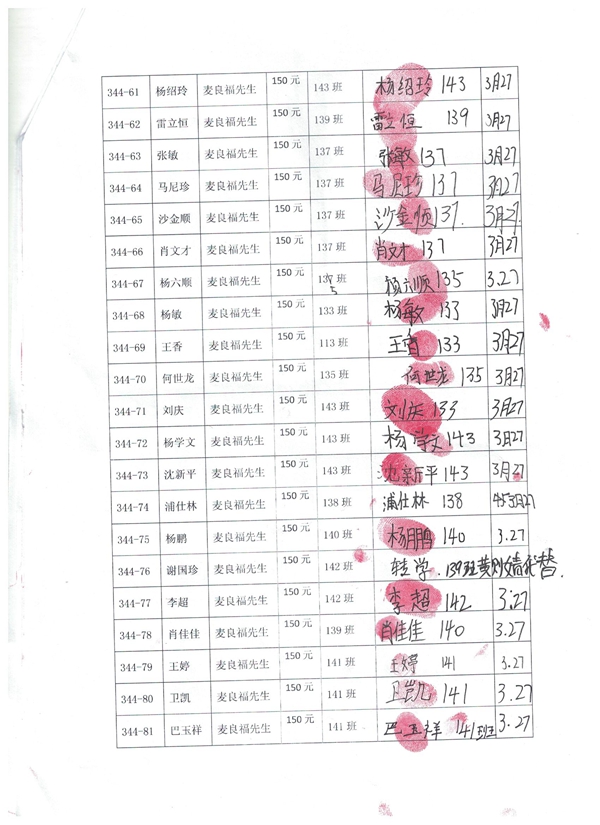 344-61 杨绍玲 麦良福先生 150 元 143 班 杨绍玲 143 3月27
344-62 雷立恒 麦良福先生 150 元 139 班 雷立恒 139 3月27
344-63 张敏 麦良福先生 150 元 137 班 张敏 137 3月27
344-64 马尼珍 麦良福先生 150 元 137 班 马尼珍 137 3月27
344-65 沙金顺 麦良福先生 150 元 137 班 沙金顺 137. 3月27.
344-66 肖文才 麦良福先生 150 元 137 班 肖文才 137 3月27
344-67 杨六顺 麦良福先生 150 元 137 班 5 杨六顺 135 3.27
344-68 杨敏 麦良福先生 150 元 133 班 杨敏 133 3月27
344-69 王香 麦良福先生 150 元 113 班 王香 133 3月27
344-70 何世龙 麦良福先生 150 元 135 班 何世龙 135 3月27
344-71 刘庆 麦良福先生 150 元 143 班 刘庆 133 3月27
344-72 杨学文 麦良福先生 150 元 143 班 杨学文 143 3月27
344-73 沈新平 麦良福先生 150 元 143 班 沈新平 143 3月27
344-74 浦仕林 麦良福先生 150 元 138 班 浦仕林 138 3月27
344-75 杨鹏 麦良福先生 150 元 140 班 杨鹏 140 3.27
344-76 谢国珍 麦良福先生 150 元 142 班 转学. 139班黄
344-77 李超 麦良福先生 150 元 142 班 李超 142 3.27
344-78 肖佳佳 麦良福先生 150 元 139 班 肖佳佳 140 3.27
344-79 王婷 麦良福先生 150 元 141 班 王婷 141 3.27
344-80 卫凯 麦良福先生 150 元 141 班 卫凯 141 3.27
344-81 巴玉祥 麦良福先生 150 元 141 班 巴玉祥 141班 3.27